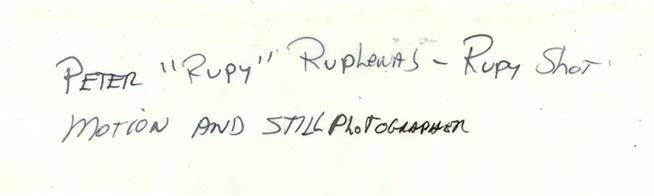 PETER "RUPY" RUPLENAS - RUPY SHOT
MOTION AND STILL PHOTOGRAPHER